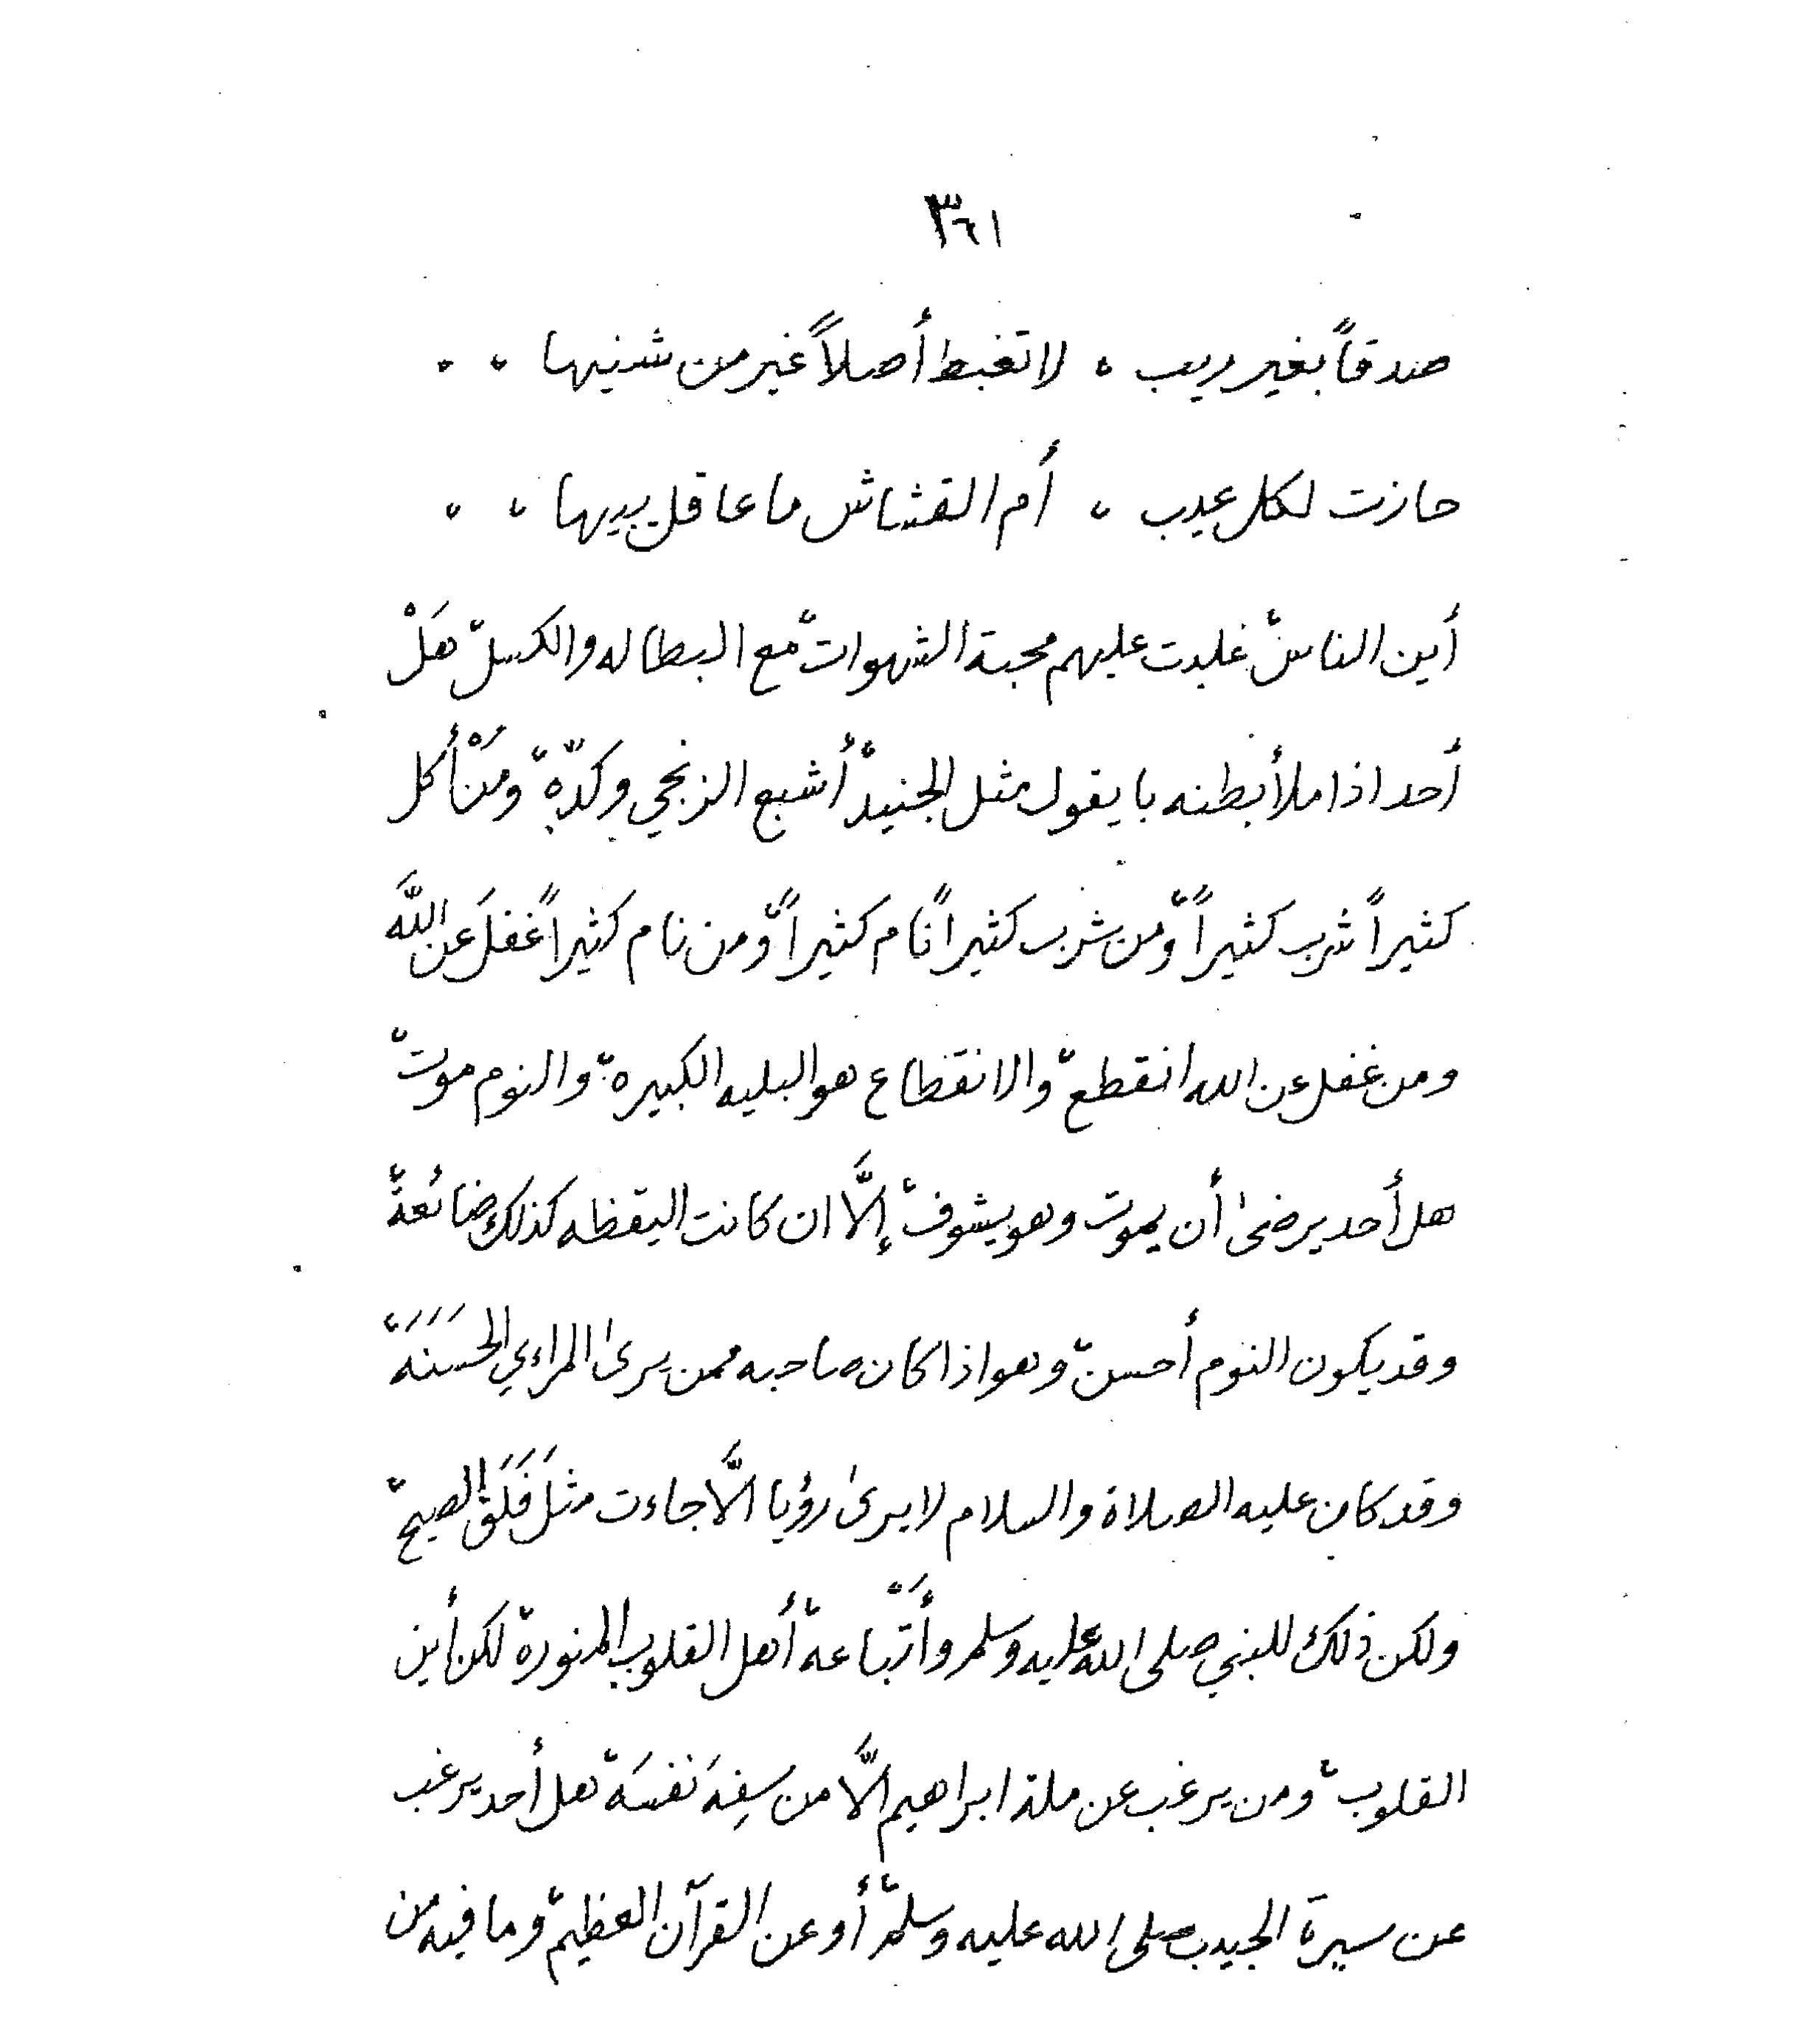 ٣٦١
صدقاً بغير ريب ، لا تغبط أصلاً غير من شنيها ، ،
حازت لكل عيب ، أم القشاش ما عاقل يبيها ، ،
أين الناس غلبت عليهم محبة الشهوات مع البطاله والكسل هَلْ
أحد اذا ملأ بطنه با يقول مثل الجنيد أشبع الزنجي وكدّه ومَنْ أكل
كثيراً شرب كثيراً ومن شرب كثيراً نام كثيراً ومن نام كثيراً غفلَ عن اللَّه
ومن غفل عن الله انقطع والانقطاع هو البليه الكبيره والنوم موت
هل أحد يرضىٰ أن يموت وهو يشوف إلَّا ان كانت اليقظه كذلك ضائعة
وقد يكون النوم أحسن وهو اذا كان صاحبه ممن يرىٰ المراءي الحَسَنَه
وقد كان عليه الصلاة والسلام لا يرىٰ رؤيا الَّا جاءت مثلَ فَلَقِ الصبح
ولكن ذلك للنبي صلى الله عليه وسلم وأَتْباعه أهل القلوب المنورة لكن أين
القلوب ومن يرغب عن ملة ابراهيم الَّا من سفِهَ نفسَه هل أحد يرغب
عن سيرة الحبيب صلى الله عليه وسلم أو عن القرآن العظيم وما فيه من